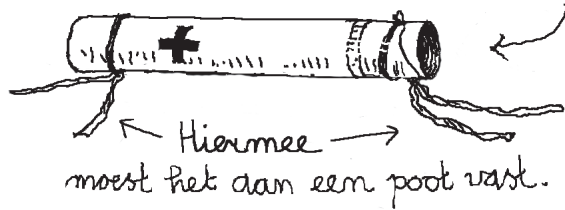 Hiermee
moest het aan een poot vast.